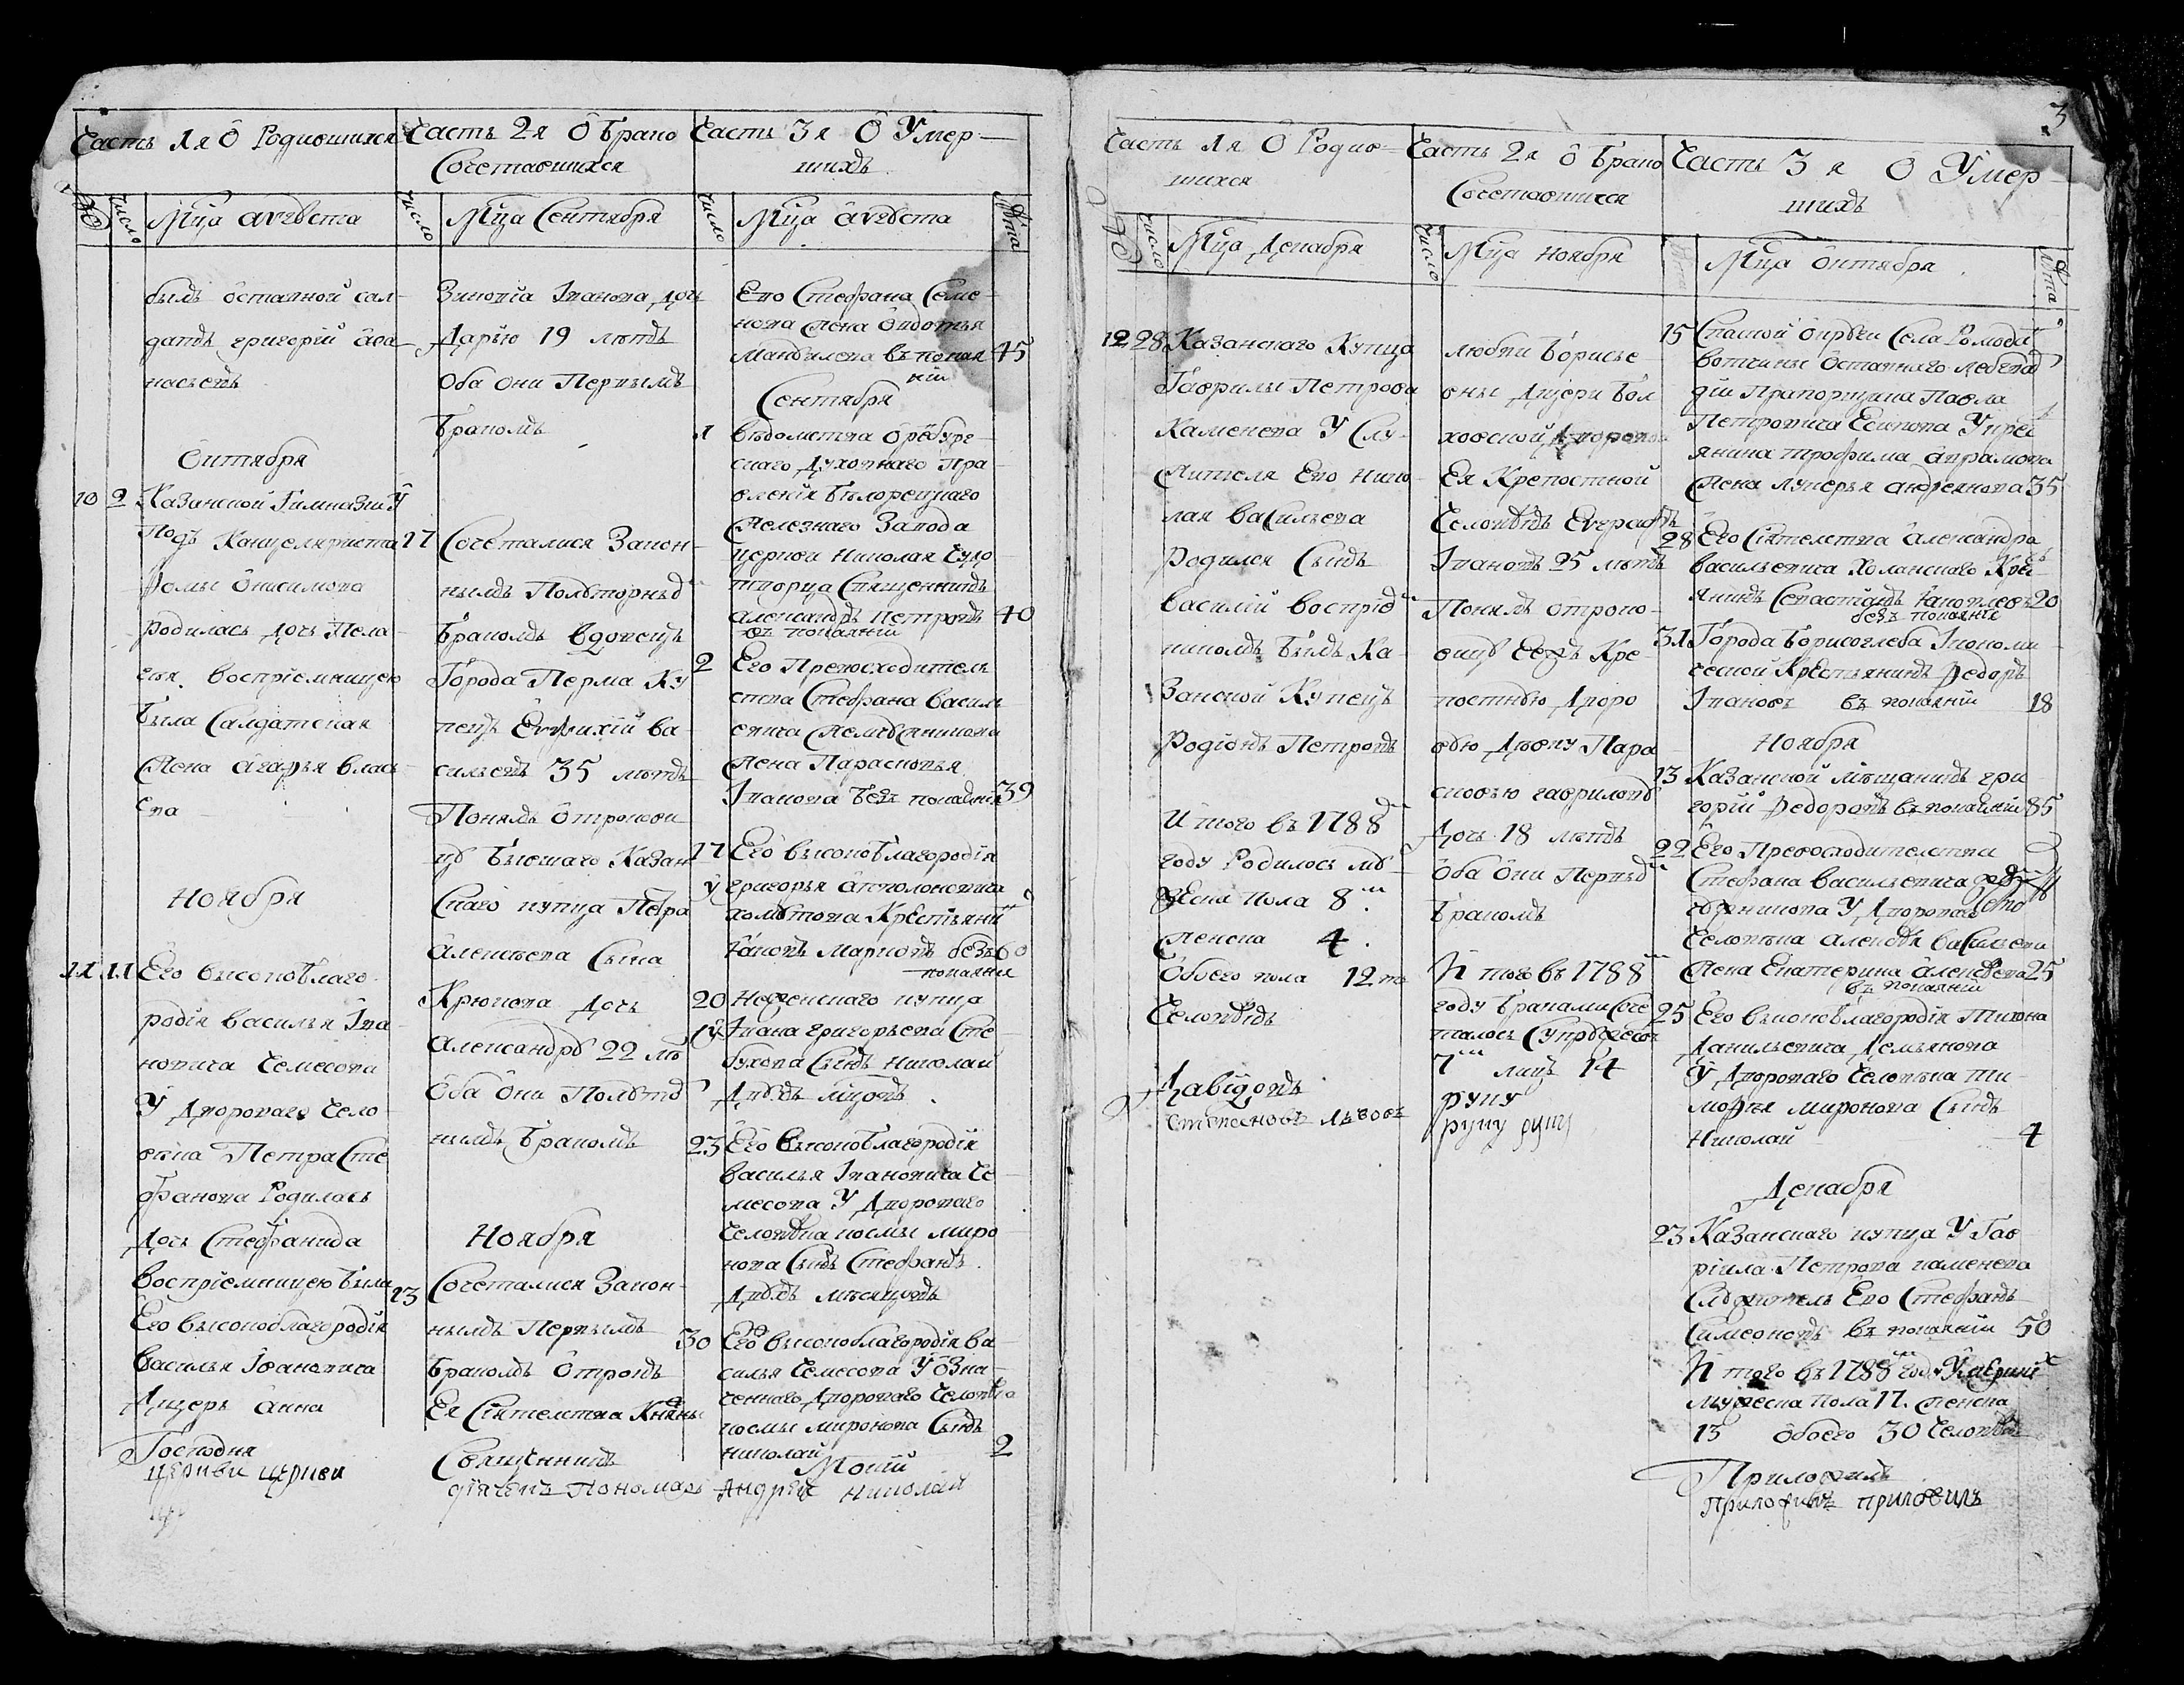 Часть 1я О Родившихся
№
число
Мца августа
былъ отставной сал-
датъ григорій Афа-
насьевъ
Октября
10 2 Казанской Гимназіи У
Подъ Канцеляриста
Фомы Онисимова
родилась дочь Пела-
гѣя. воспріемницею
была Салдатская
Жена агафья влась-
ева
Ноября
11 11 Его высокоблаго-
родія василья Іва-
новича Чемесова
У двороваго чело-
вѣка Петра Сте-
фанова Родилась
дочь Стефанида
воспріемницею была
Его высокоблагородія
василья Іванновича
Дщерь анна
Господня
церкви церкви
Часть 2я О Брако
Сочетавшихся
число
Мца Сентября
Зиновіа Іванова дочь
Дарью 19 лѣтъ
Оба они Первымъ
Бракомъ
17 Сочетался Закон-
нымъ Полвторымъ
Бракомъ вдовецъ
Города Перма Ку
пецъ Евтихій ва-
сильевъ 35 лѣтъ
Понялъ отрокови
цу бывшаго Казан
скаго купца Петра
Алексѣева Сына
Крюкова дочь
Александру 22 лѣ
Оба они Полвто
нымъ Бракомъ
Ноября
13 Сочетался Закон-
нымъ Первымъ
Бракомъ Отрокъ
Ея Сіятелства Княжны
Священникъ
діаченъ Пономарь
Часть 3я О Умер-
шихъ
число
Мца августа
лѣта
Его Стефана Семе-
нова жена Овдотья
въ покая
ніи 45
Сентября
1 вѣдомства Оребург-
скаго Духовнаго Пра-
вленія Бѣлорецкаго
железнаго Завода
церкви Николая Чудо
творца Священникъ
александръ Петровъ 40
въ покаяніи
2 Его Превосходитель
ства Стефана василь
евича
жена Парасковья
Іванова безъ покаянія 39
17 Его высокоблагородія
У григорья аполоновича
Крестьянинъ
Яковъ Марковъ безъ 60
покаянія
20 купца
У Ивана григорьева
Сынъ Николай
Двухъ мцовъ
23 Его высокоблагородія
василья Івановича Че-
месова У двороваго
человѣка космы миро-
нова Сынъ Стефанъ.
Двухъ мѣсяцовъ
30 Его высокоблагородія ва
силья Чемесова У озна-
ченнаго двороваго человѣка
космы миронова Сынъ
николай 2
Мокій
Андрей николай
3
Часть 1я О Родив-
шихся
№
число
Мца Декабря
12 28 Казанскаго Купца
Гаврилы Петрова
Каменева У Слу-
жителя Его нико-
лая васильева
родился Сынъ
василій воспріе-
никомъ былъ Ка-
занской Купецъ
Родіонъ Петровъ
И того въ 1788
году Родилось му-
жеска Пола 8
женска 4.
Обоего пола 12 ть
Человѣкъ
Давидовъ
степановъ львовъ
Часть 2я О Брако
Сочетавшихся
число
Мца Ноября
любви Борисье
вны дщери Вол
хонской дворово
Ея Крепостной
Человѣкъ Евграфъ
Івановъ 25 лѣтъ
Понялъ отроко-
вицу Еяжъ Кре-
постную дворо
вую Дѣвку Пара
сковью гаврилову
Дочь 18 лѣтъ
Оба они Первы
Бракомъ
И того въ 1788
году Браками Соче
талось Супружест
7 лицъ 14
руку
руку руку
Часть 3я О Умер-
шихъ
Мца Октября
лѣта
15 Спаской Округи Села
вотчины Оставнаго
Прапорщика Павла
Петровича Есипова У крес
янина трофима Аврамова
жена лукерья андреянова 35
28 Его Сіятелства Александра
васильевича Крес
янинъ Севастьянъ Яковлевъ 20
безъ покаянія
31 Города Борисоглеба Економи-
ческой Крестьянинъ Федоръ
Івановъ въ покаяніи 18
Ноября
13 Казанской мѣщанинъ гри-
горій Федоровъ въ покаяніи 85
22 Его Превосходителства
Стефана васильевича
У двороваго его
Человѣка алексѣя васильева
жена Екатерина алексѣева 25
въ покаяніи
25 Его высокоблагородія Тихона
Данильевича Демьянова
У двороваго Человѣка ти-
мофѣя миронова Сынъ
Николай 4
Декабря
23 Казанскаго купца У Гав-
ріила Петрова каменева
Служитель Его Стефанъ
Симеоновъ въ покаяніи 50
И того въ 1788 году Умерших
мужеска Пола 17. женска
13 Обоего 30 Человѣкъ
Приложилъ
приложилъ приложилъ